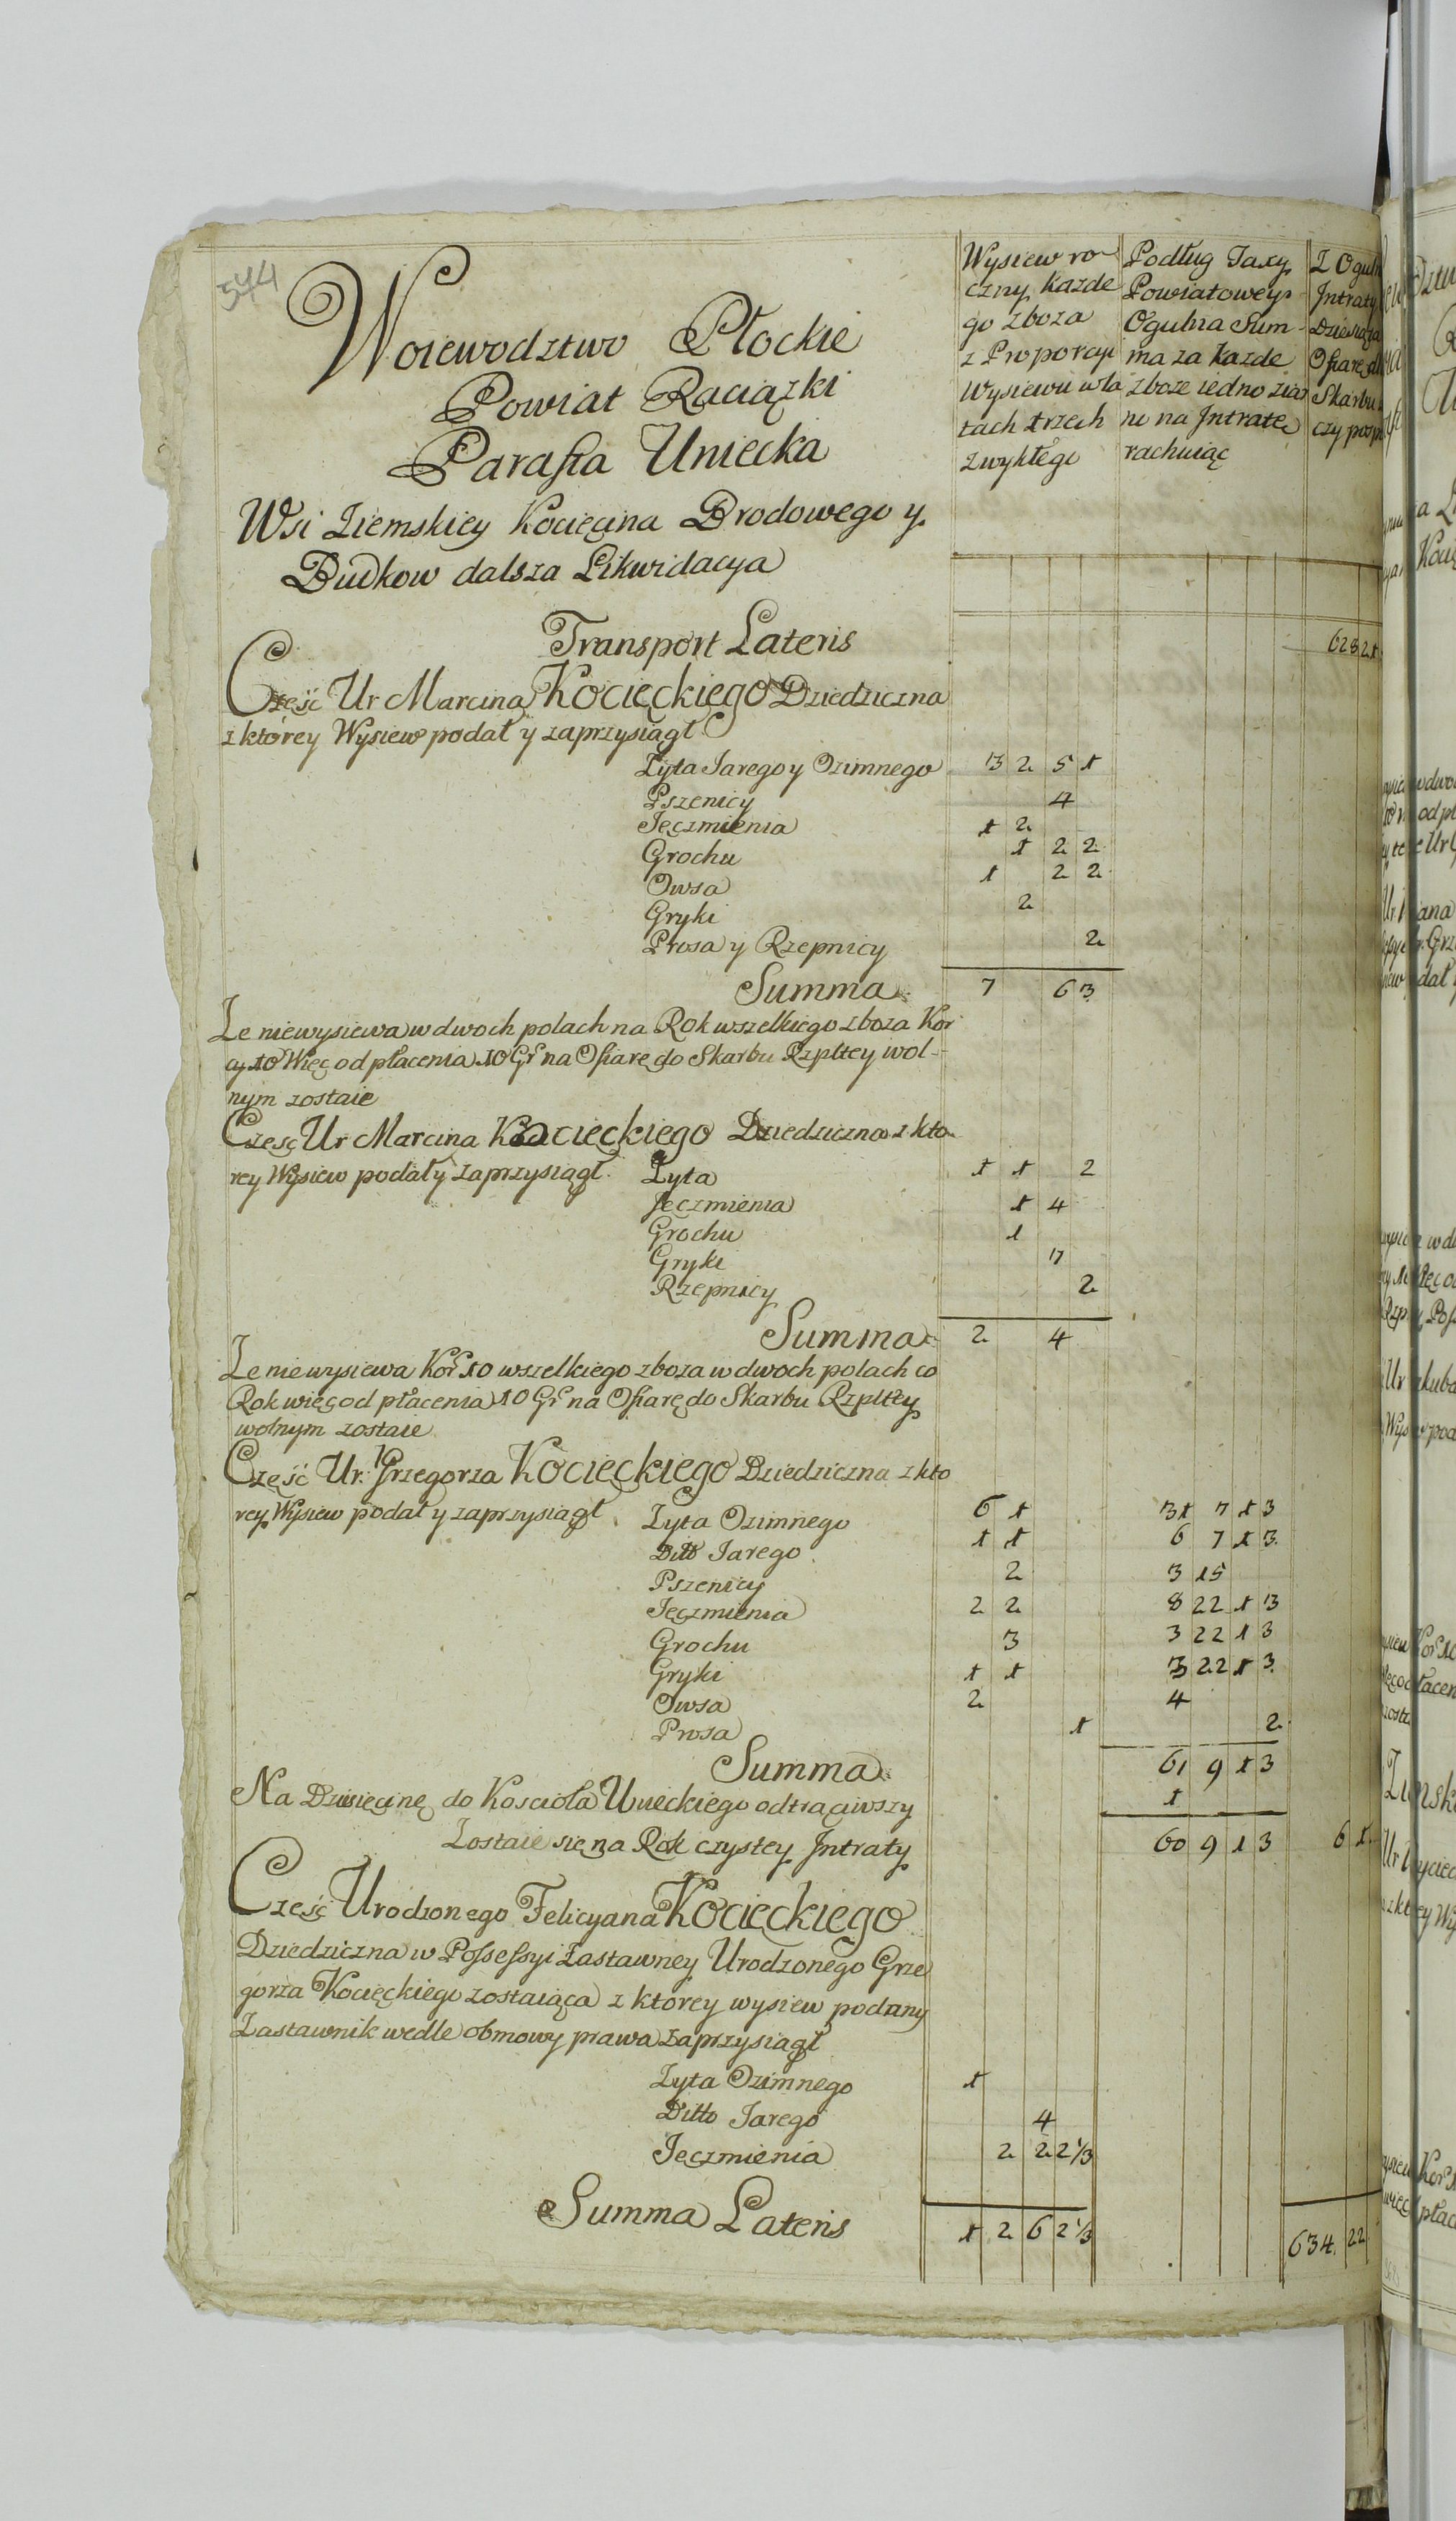 544
Woiewodztwo Płockie
Powiat Raciązki
Parafia Uniecka
Wsi Ziemskiey Kocięcina Brodowego y
Budkow dalsza Likwidacya
Wysiew ro-
czny kazde
go zboza
z Proporcyi
Wysiewu w la
tach trzech
zwykłego
Podług Taxy
Powiatowey
Ogulna Sum
ma za kazde
zboze iedno ziar
no na Jntratę
rachuiąc
Z Ogul
Jntraty
Dziesiąta
Ofiarę dl
Skarbu
czy posp
Transport Lateris 628 21
Część Ur Marcina Kocięckiego Dziedziczna
z którey Wysiew podał y zaprzysiągł
Zyta Jarego y Ozimnego 3 2 5 1
Pszenicy 4
Jęczmienia 1 2
Grochu 1 2 2
Owsa 1 2 2
Gryki 2
Prosa y Rzepnicy 2
Summa 7 6 3
Ze niewysiewa w dwoch polach na Rok wszelkiego zboza Kor
cy 10 Więc od płacenia 10 Gr na Ofiarę do Skarbu Rzpltey wol-
nym zostaie
Częsc Ur Marcina Kocieckiego Dziedziczna z kto
rey Wysiew podał y zaprzysiągł Zyta 1 1 2
Jęczmienia 1 4
Grochu 1
Gryki 7
Rzepnicy 2
Summa 2 4
Ze niewysiewa Kor 10 wszelkiego zboza w dwoch polach co
Rok więc od płacenia 10 Gr na Ofiarę do Skarbu Rzpltey
wolnym zostaie
Część Ur. Grzegorza Kocięckiego Dziedziczna z kto
rey Wysiew podał y zaprzysiągł Zyta Ozimnego 6 1 31 7 1 3
Ditto Jarego 1 1 6 7 1 3
Pszenicy 2 3 15
Jęczmienia 2 2 8 22 1 3
Grochu 3 3 22 1 3
Gryki 1 1 3 22 1 3
Owsa 2 4
Prosa 1 2
Summa 61 9 1 3
Na Dziesięcinę do Koscioła Unieckiego odtrąciwszy 1
Zostaie się na Rok czystey Jntraty 60 9 1 3 6 1
Częsć Urodzonego Felicyana Kocięckiego
Dziedziczna w Possessyi Zastawney Urodzonego Grze
gorza Kocięckiego zostaiąca z ktorey wysiew podany
Zastawnik wedle obmowy prawa zaprzysiągł
Zyta Ozimnego 1
Ditto Jarego 4
Jęczmienia 2 2 2 1/3
Summa Lateris 1 2 6 2 1/3 634 22